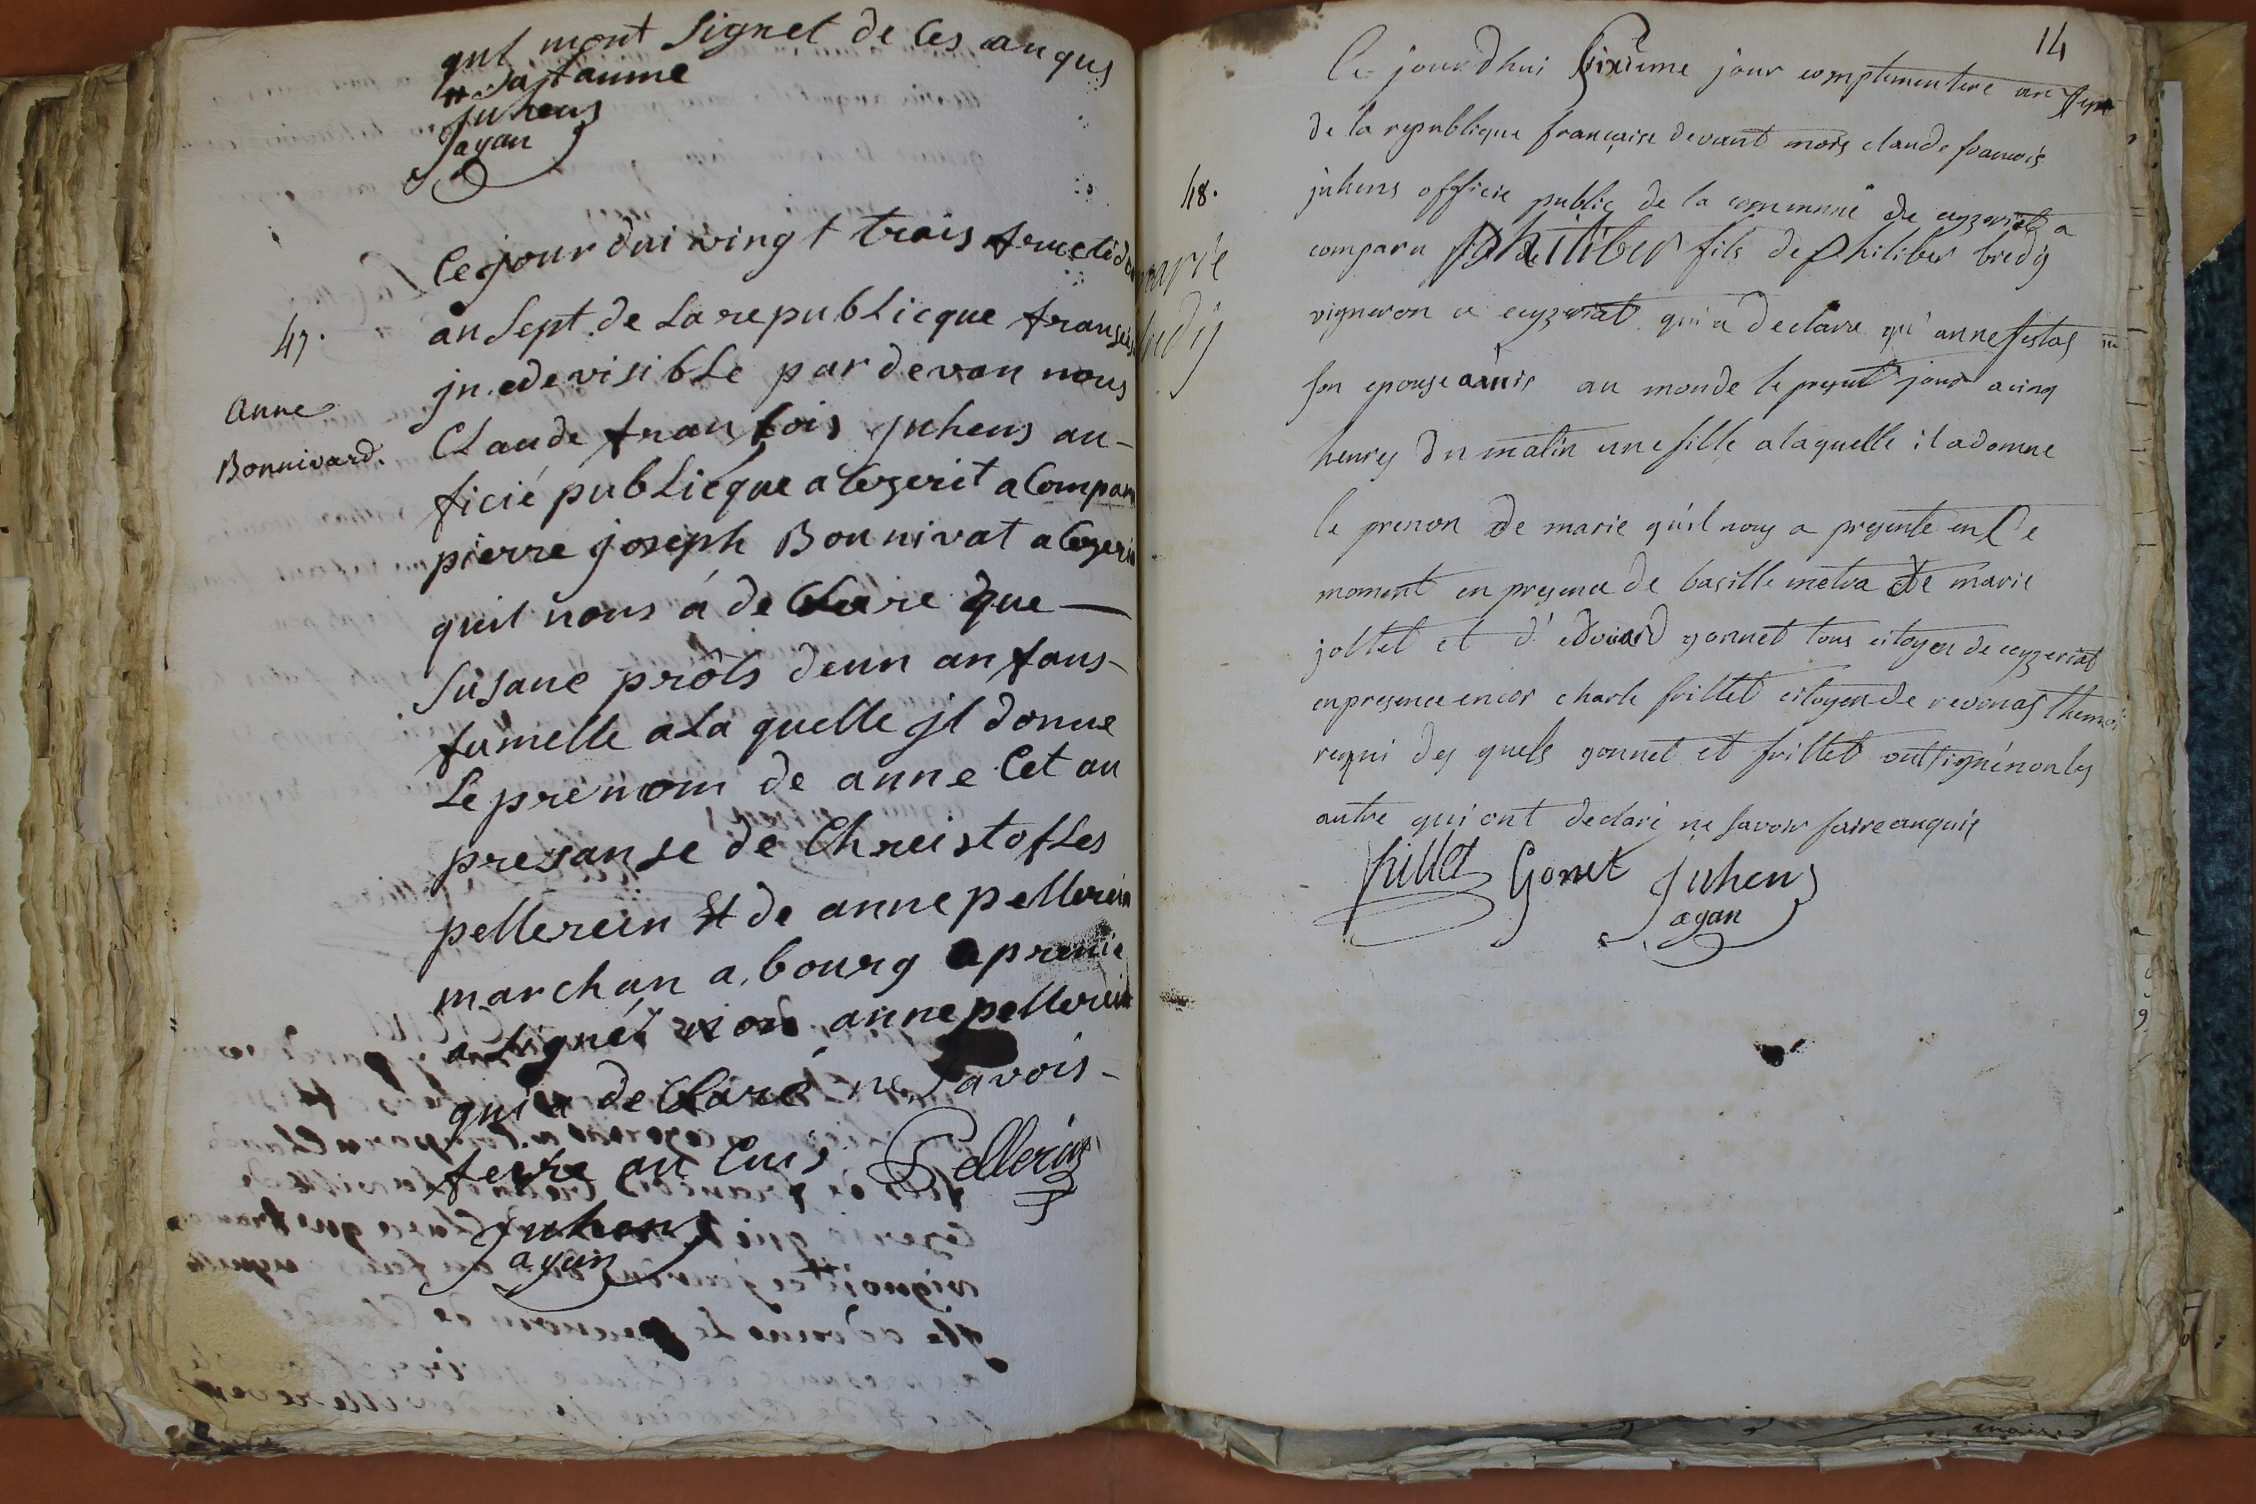 qui mont Signet de Ces anques
Sajtaume
Juhens
agan
47.
Anne
Bonnivard.
Cejour dui vingt trois fructidor
an Sept de La republicque franseise
jn.edevisibLe par devan nous
CLaude fransois juhens au-
ficié pubLicque a Cezerit a Compam
pierre joseph Bonnivat a Cezeri
quil nous á de CLaire que —
Susane prôls deun anfans-
fumelle aLa quelle jl donne
Le prénom de anne Cet au
presanse de Chreistofles
pellerein et de anne pellerein
marchan a bourg a premie
a signét non anne pellerein
qui a de CLaré ne savois-
feire au Cuis Pellerin
Juhens
agan
14
48.
marie
bredy
Ce jourdhui Sixieme jour complementere an sept
de la republique française devant mois claude francois
juhens officie public de la commune de ceyzeriat a
comparu philiber fils de philiber bredy
vigneron a ceyzeriat qui a declara qu'anne festas
son epouse amis au monde le present jour a cinq
heures du matin une fille a laquelle il adonne
le prenon de marie qu'il nous a presente en Ce
moment en presence de basille metra de marie
joltet et d'edouard gonnet tous citoyen de ceyzeriat
en presence encor charle frillet citoyen de revonas themoi
requi des quels gonnet et frillet ont signé non les
autre qui ont declaré ne savoir faire anquis
frillet Gonet Juhens
agan